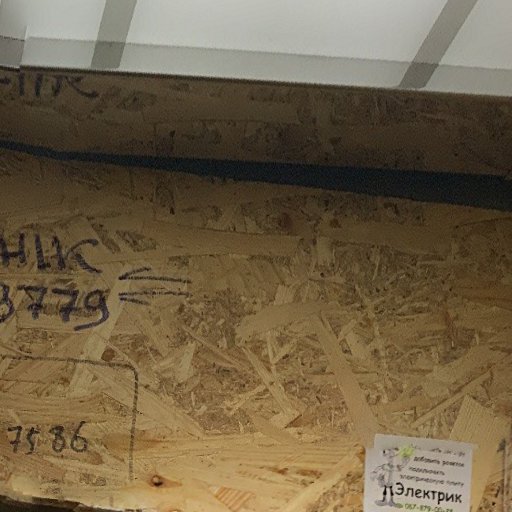 НІК
НІК
3779
7586
добавить розеток
подключить
электрическую плиту
Электрик